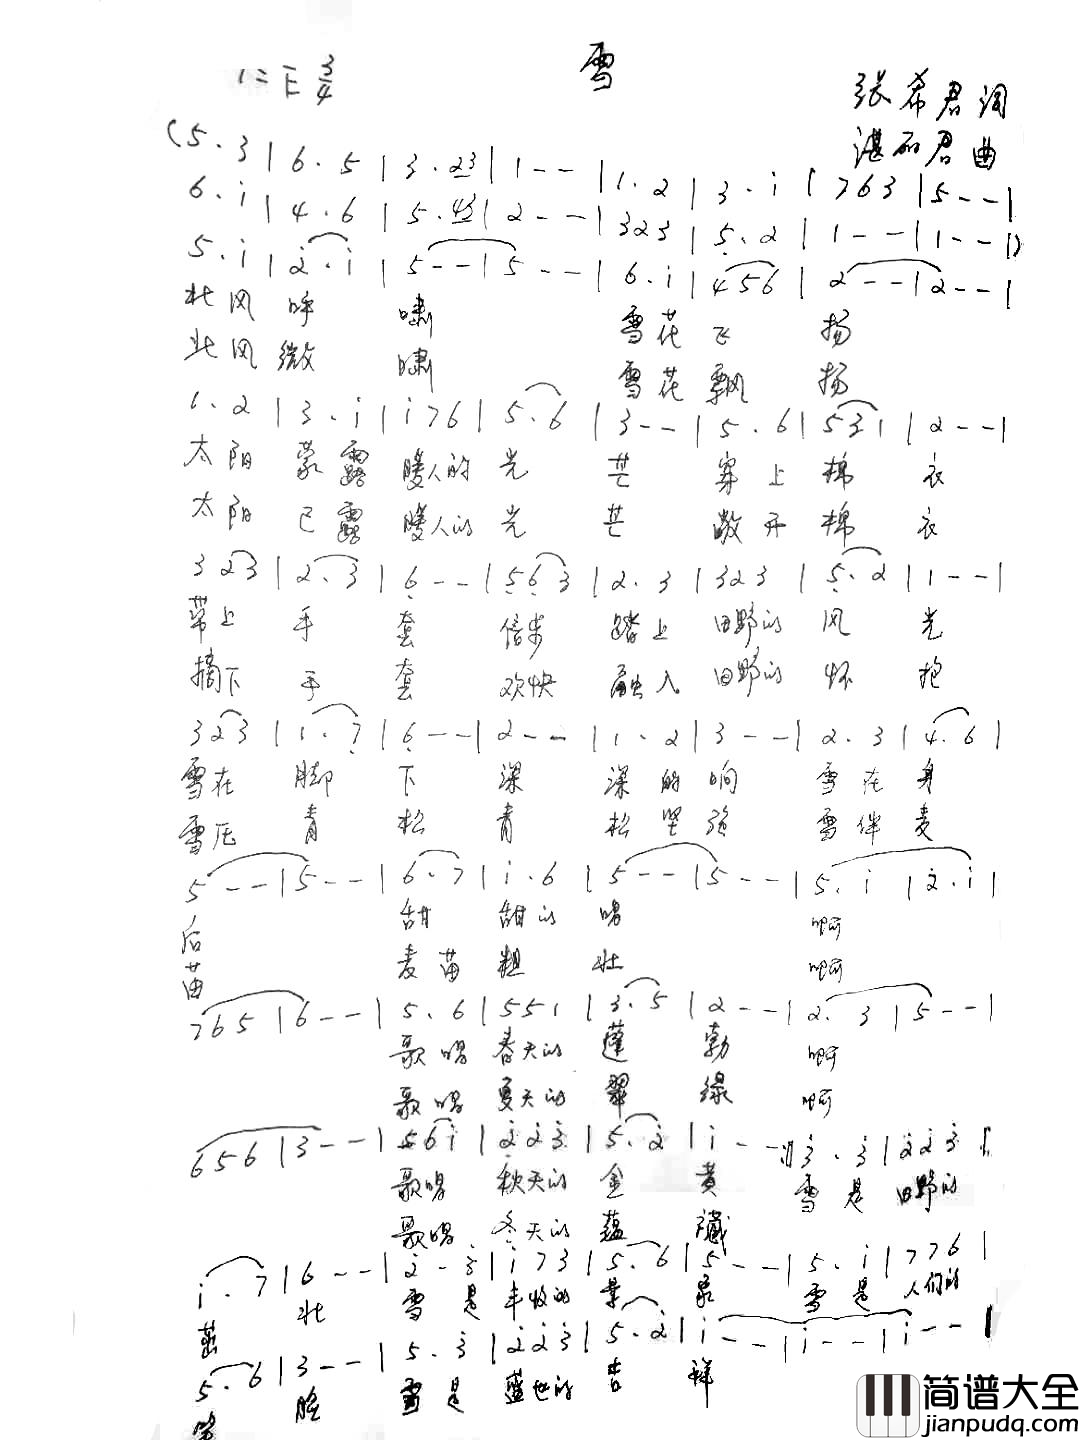 雪
1=E 3/4
张希君 词
湛石君 曲
(5. 3 | 6. 5 | 3. 23 | 1 - - | 1. 2 | 3. i | 763 | 5 - - |
6. i | 4. 6 | 5. 43 | 2 - - | 323 | 5. 2 | 1 - - | 1 - - |)
5. i | 2. i | 5 - - | 5 - - | 6. i | 456 | 2 - - | 2 - - |
北风 呼 啸 雪花 飞 扬
北风 微 啸 雪花 飘 扬
1. 2 | 3. i | i76 | 5. 6 | 3 - - | 5. 6 | 531 | 2 - - |
太阳 蒙露 暖人的 光 芒 穿上 棉 衣
太阳 已露 暖人的 光 芒 敞开 棉 衣
3 23 | 2. 3 | 6 - - | 563 | 2. 3 | 323 | 5. 2 | 1 - - |
带上 手 套 信步 踏上 田野的 风 光
摘下 手 套 欢快 融入 田野的 怀 抱
3 23 | 1. 7 | 6 - - | 2 - - | 1. 2 | 3 - - | 2. 3 | 4. 6 |
雪在 脚 下 深 深的 响 雪在 身
雪压 青 松 青 松坚 强 雪伴 麦
5 - - | 5 - - | 6. 7 | i. 6 | 5 - - | 5 - - | 5. i | 2. i |
后 甜 甜的 唱 啊
苗 麦苗 粗 壮 啊
765 | 6 - - | 5. 6 | 551 | 3. 5 | 2 - - | 2. 3 | 5 - - |
歌唱 春天的 蓬 勃 啊
歌唱 夏天的 翠 绿 啊
656 | 3 - - | 56i | 223 | 5. 2 | i - - :|| 3. 3 | 223 |
歌唱 秋天的 金 黄 雪是 田野的
歌唱 冬天的 蕴 藏
i. 7 | 6 - - | 2 - 3 | i73 | 5. 6 | 5 - - | 5. i | 776 |
茁 壮 雪是 丰收的 景 象 雪是 人们的
5. 6 | 3 - - | 5. 3 | 223 | 5. 2 | i - - | i - - | i - - |
笑 脸 雪是 盛世的 吉 祥
简谱大全
jianpudq.com